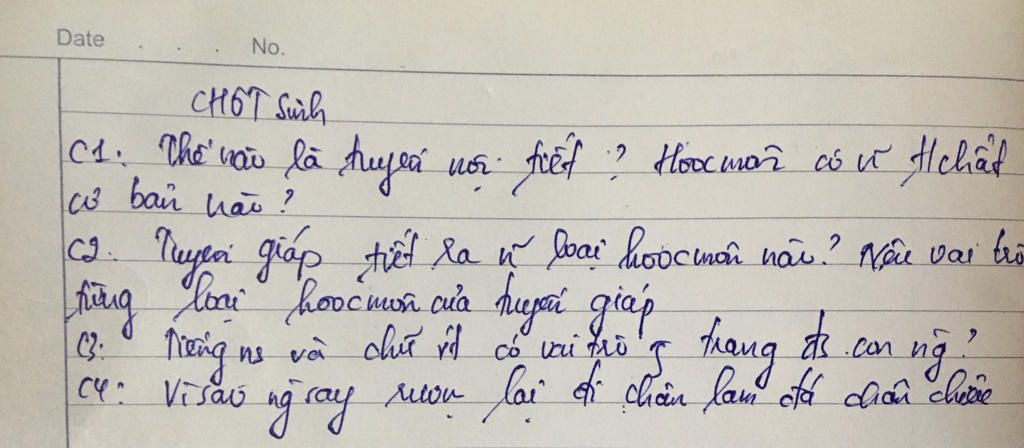 Date . . . No.
CHÔT Sinh
C1: Thế nào là tuyến nội tiết ? Hoocmôn có n~ t/chất
cơ bản nào ?
C2. Tuyến giáp tiết ra n~ loại hoocmôn nào ? Nêu vai trò
từng loại hoocmôn của tuyến giáp
C3: Tiếng ns và chữ vt có vai trò g trong đs con ng ?
C4: Vì sao ng say rượu lại đi chân lam đá chân chiêu